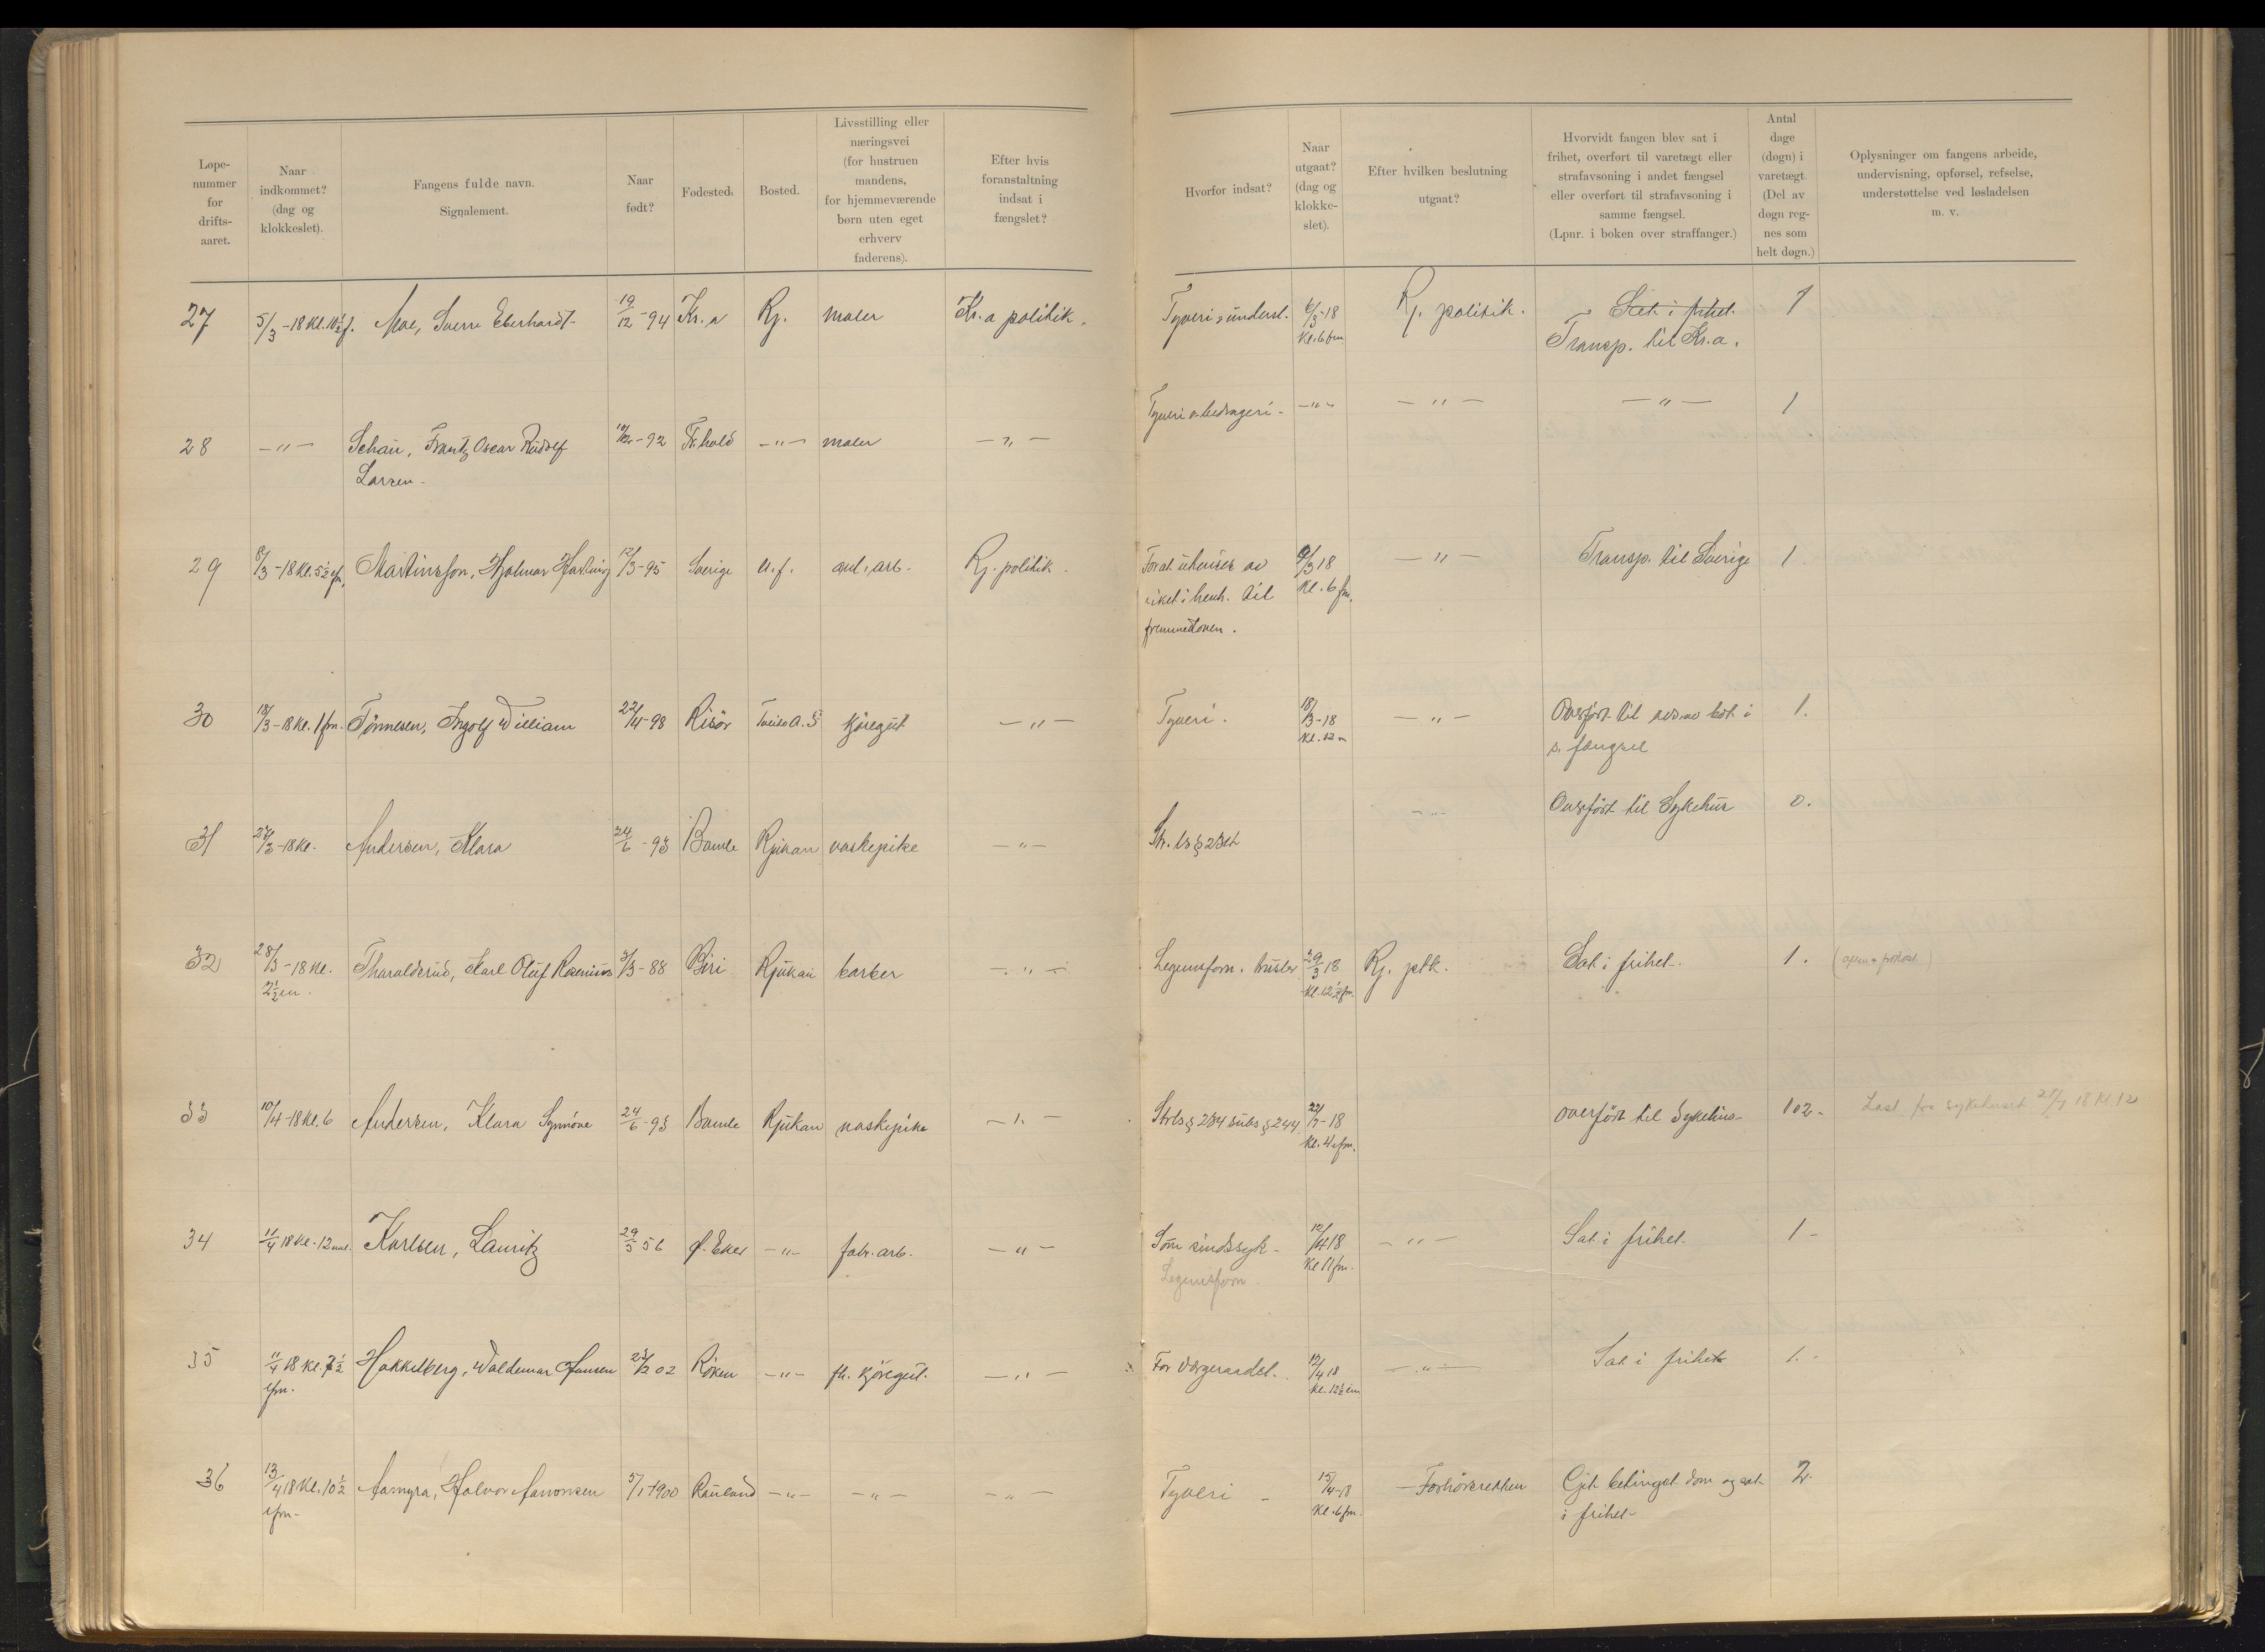 Løpe-
nummer
for
drifts-
aaret.
Naar
indkommet?
(dag og
klokkeslet).
Fangens fulde navn.
Signalement.
Naar
født?
Fødested.
Bosted.
Livsstilling eller
næringsvei
(for hustruen
mandens,
for hjemmeværende
børn uten eget
erhverv
faderens).
Efter hvis
foranstaltning
indsat i
fængslet?
Hvorfor indsat?
Naar
utgaat?
(dag og
klokke-
slet).
Efter hvilken beslutning
utgaat?
Hvorvidt fangen blev sat i
frihet, overført til varetægt eller
strafavsoning i andet fængsel
eller overført til strafavsoning i
samme fængsel.
(Lpnr. i boken over straffanger.)
Antal
dage
(døgn) i
varetægt.
(Del av
døgn reg-
nes som
helt døgn.)
Oplysninger om fangens arbeide,
undervisning, opførsel, refselse,
understøttelse ved løsladelsen
m. v.
27 5/3-18 Kl. 10½ f. Moe, Sverre Eberhardt 19/12-94 Kr.a Rj. maler Kr.a politik. Tyveri & underst. 6/3-18 Rj. politik. Sat i frihet. 1
Kl. 6 fm Transp. til Kr.a.
28 -"- Schau, Frantz Oscar Rudolf -92 Fr.hald -"- maler -"- Tyveri & bedrageri -"- -"- -"- 1
Larsen
29 8/3-18 Kl. 5½ efm. Martinsson, Hjalmar Harling 12/3-95 Sverige u.f. anl.arb. Rj. politik. For at utvises av 9/3 18 -"- Transp. til Sverige 1.
riket i henh. til Kl. 6 fm.
fremmedloven.
30 18/3-18 Kl. 1 fm. Tønnesen, Ingolf William 22/4-98 Risör kjöregut -"- Tyveri. 18/3-18 -"- Overfört til 1.
Kl. 12 m s. fængsel
31 /3-18 Kl. Andersen, Klara 24/6-93 Bamle Rjukan vaskepike -"- Str. ls § 234 -"- Overfört til Sykehus 0.
32 28/3-18 Kl. Tharaldsrud, Karl Oluf Rosenius 3/3-88 Biri Rjukan barber -"- Legemsforn. trusler 29/3 18 Rj. pltk. Sat i frihet. 1.
2½ em. Kl. 12½ fm.
33 10/4-18 Kl. 6 Andersen, Klara Synnöve 24/6-93 Bamle Rjukan vaskepike -"- Strls § 234 subs § 244. 22/7-18 overfört til Sykehus 102. Løsl. fra sykehuset 27/7 18 Kl. 12
Kl. 4 efm.
34 11/4 18 Kl. 12 nat. Karlsen, Lauritz 29/5 56 Ø. Eker -"- fabr. arb. -"- Som sindssyk 12/4 18 -"- Sat i frihet. 1
Legemsforn. Kl 11 fm.
35 11/4 18 Kl. 7½ Hakkelberg, Valdemar Hansen 23/2 02 Röken -"- fh. kjöregut. -"- For værgeraadet. 12/4 18 -"- Sat i frihet 1.
efm. Kl. 12½ em
36 13/4 18 Kl. 10½ Aamyra, Halvor Aanonsen 5/1-1900 Rauland -"- -"- -"- Tyveri 15/4-18 Forhörsretten Gjt. betinget dom og sat 2.
efm. Kl. 6 fm. i frihet